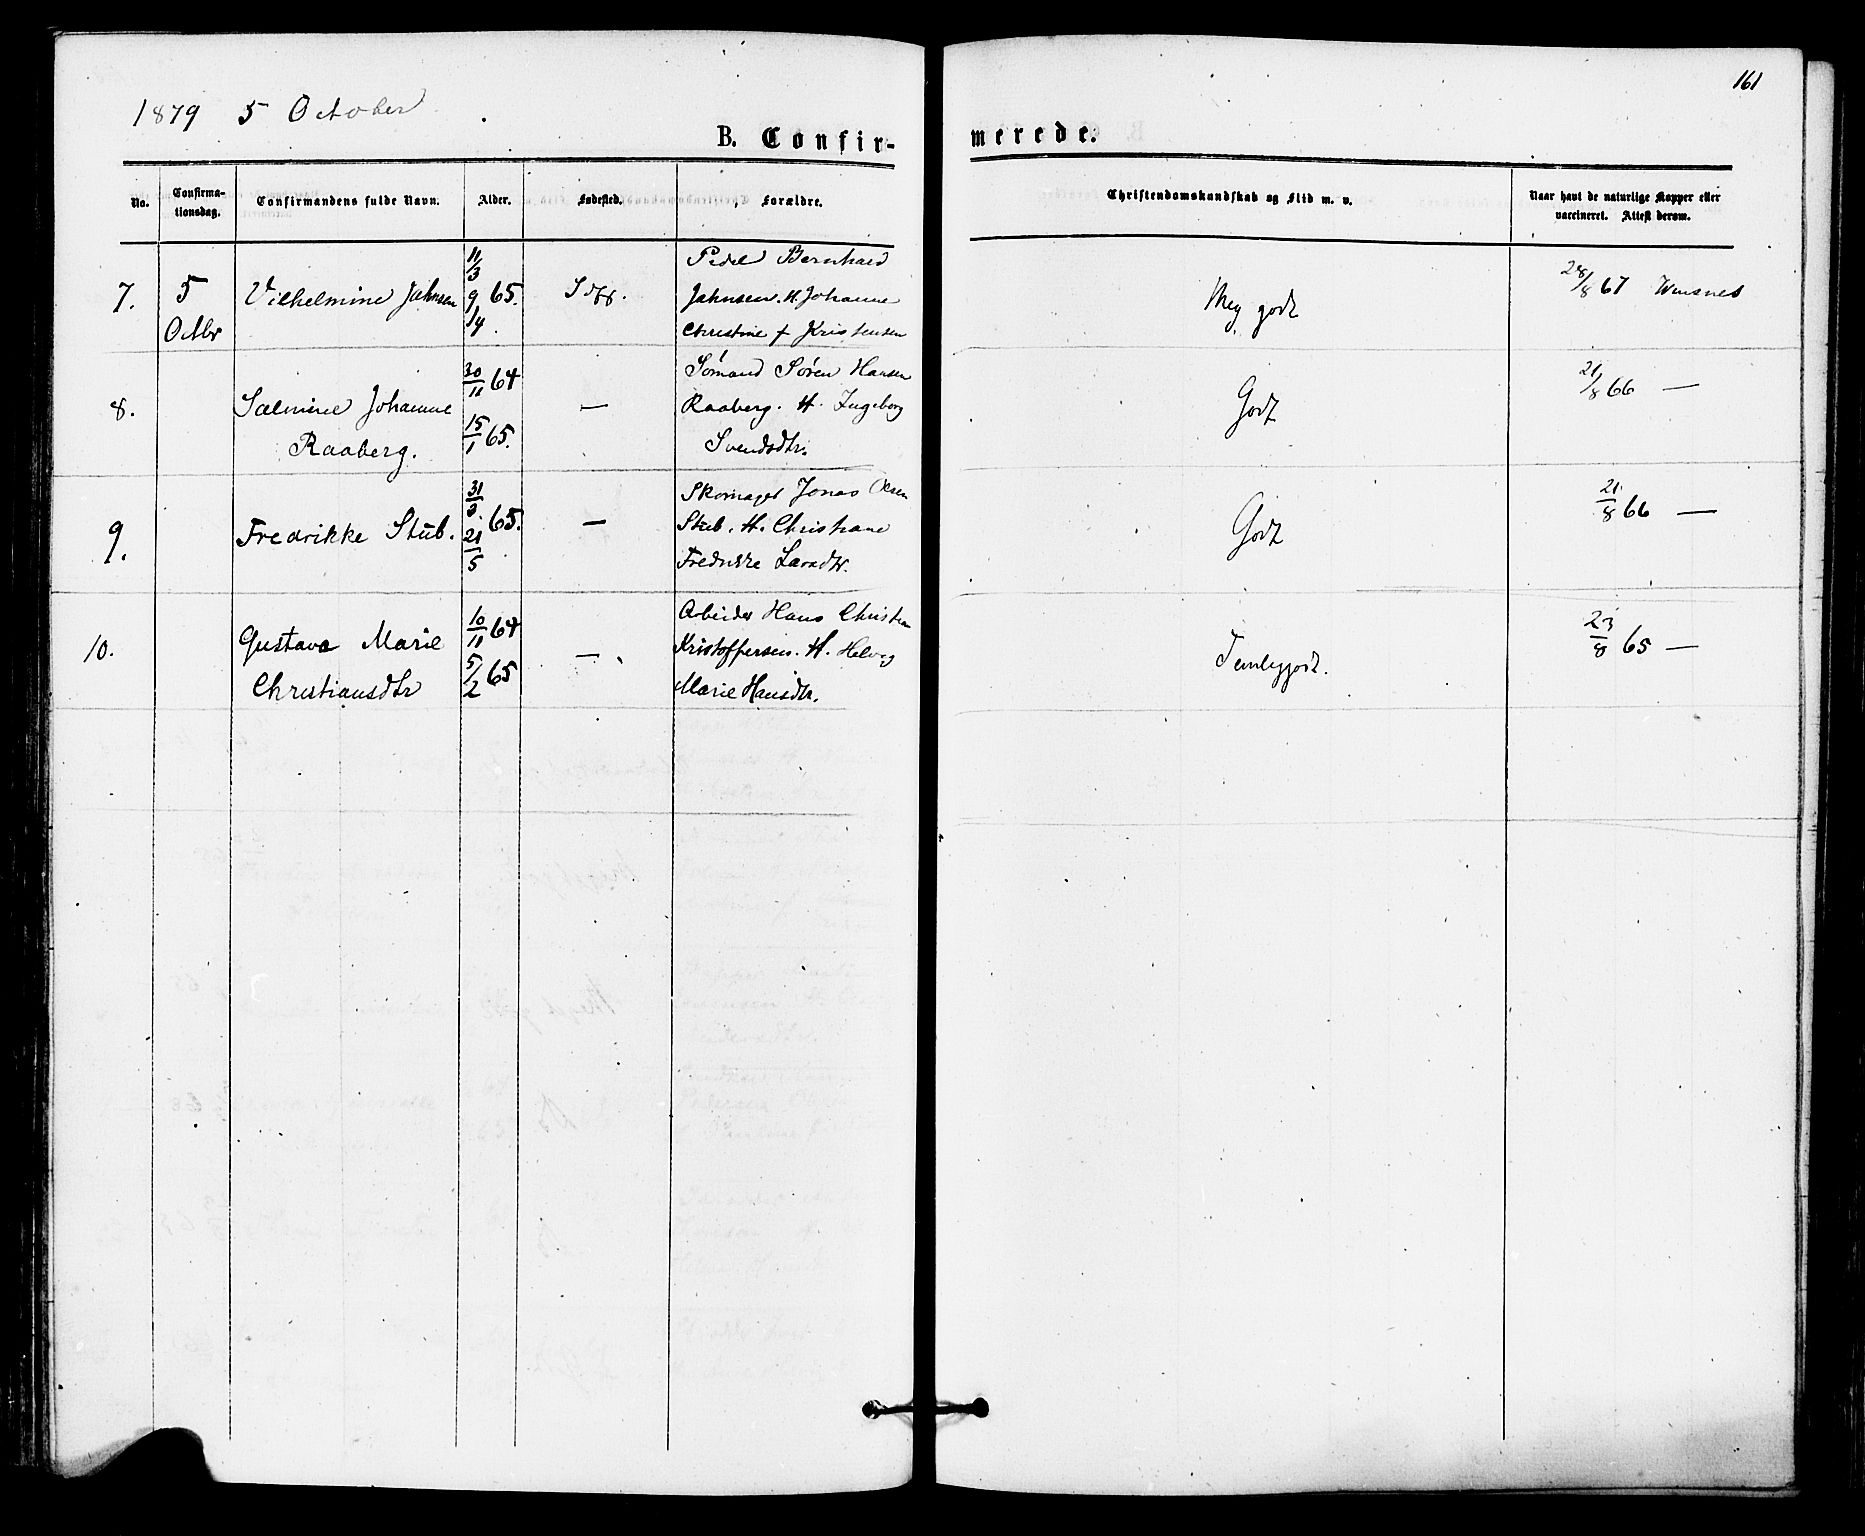 161
1879 5 October
B. Confir-
merede.
No.
Confirma-
tionsdag.
Confirmandens fulde Navn.
Alder.
Fødested.
Forældre.
Christendomskundskab og Flid m. v.
Naar havt de naturlige Kopper eller
vaccineret. Attest derom.
7.
5
Octbr
Vilhelmine Jahnsen
11/3
9 65.
/4.
Bernhard
Jahnsen. H. Johanne
Christine f Kristensen
Meg godt
28/8 67
8.
Johanne
Raaberg.
30/11 64
15/1 65.
—
Sømand Søren Hansen
Raaberg. H. Ingeborg
Svendsdtr.
Godt
21/8 66 —
9.
Fredrikke Stub.
31/3.
65.
21/5
—
Skomager Jonas Olsen
Stub. H. Christiane
Fredrikke Larsdtr.
Godt
21/8 66 —
10.
Gustava Marie
Christiansdtr
10/11 64
5/2 65
—
Arbeider Hans Christian
Kristoffersen. H. Helvig
Marie Hansdtr.
Temlg godt.
23/8 65 —